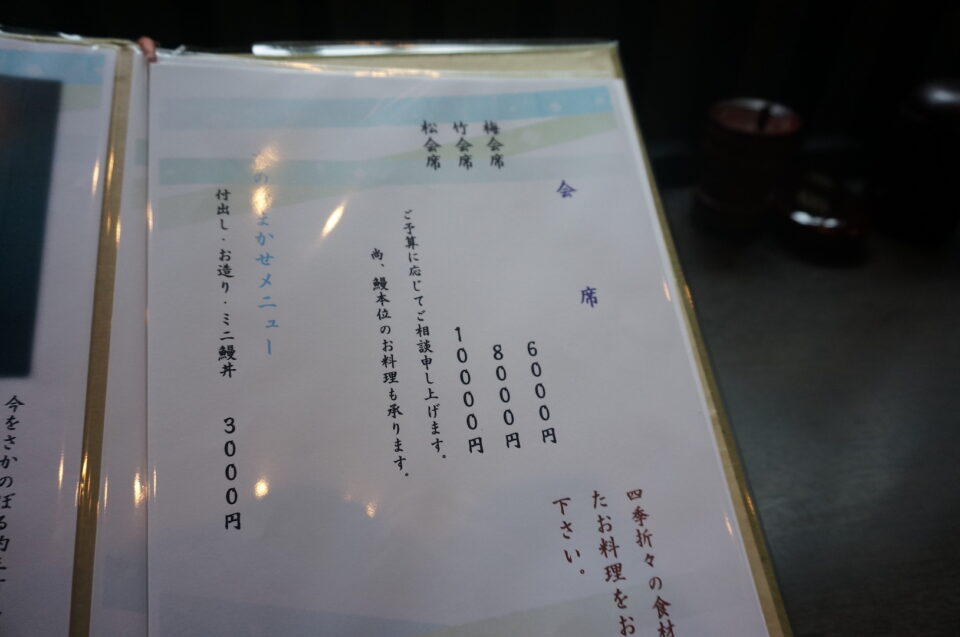 四季折々の食材
たお料理をお
下さい。
会席
梅会席 6000円
竹会席 8000円
松会席 10000円
ご予算に応じてご相談申し上げます。
尚、鰻本位のお料理も承ります。
かせメニュー
付出し・お造り・ミニ鰻丼 3000円
今をさかのぼる